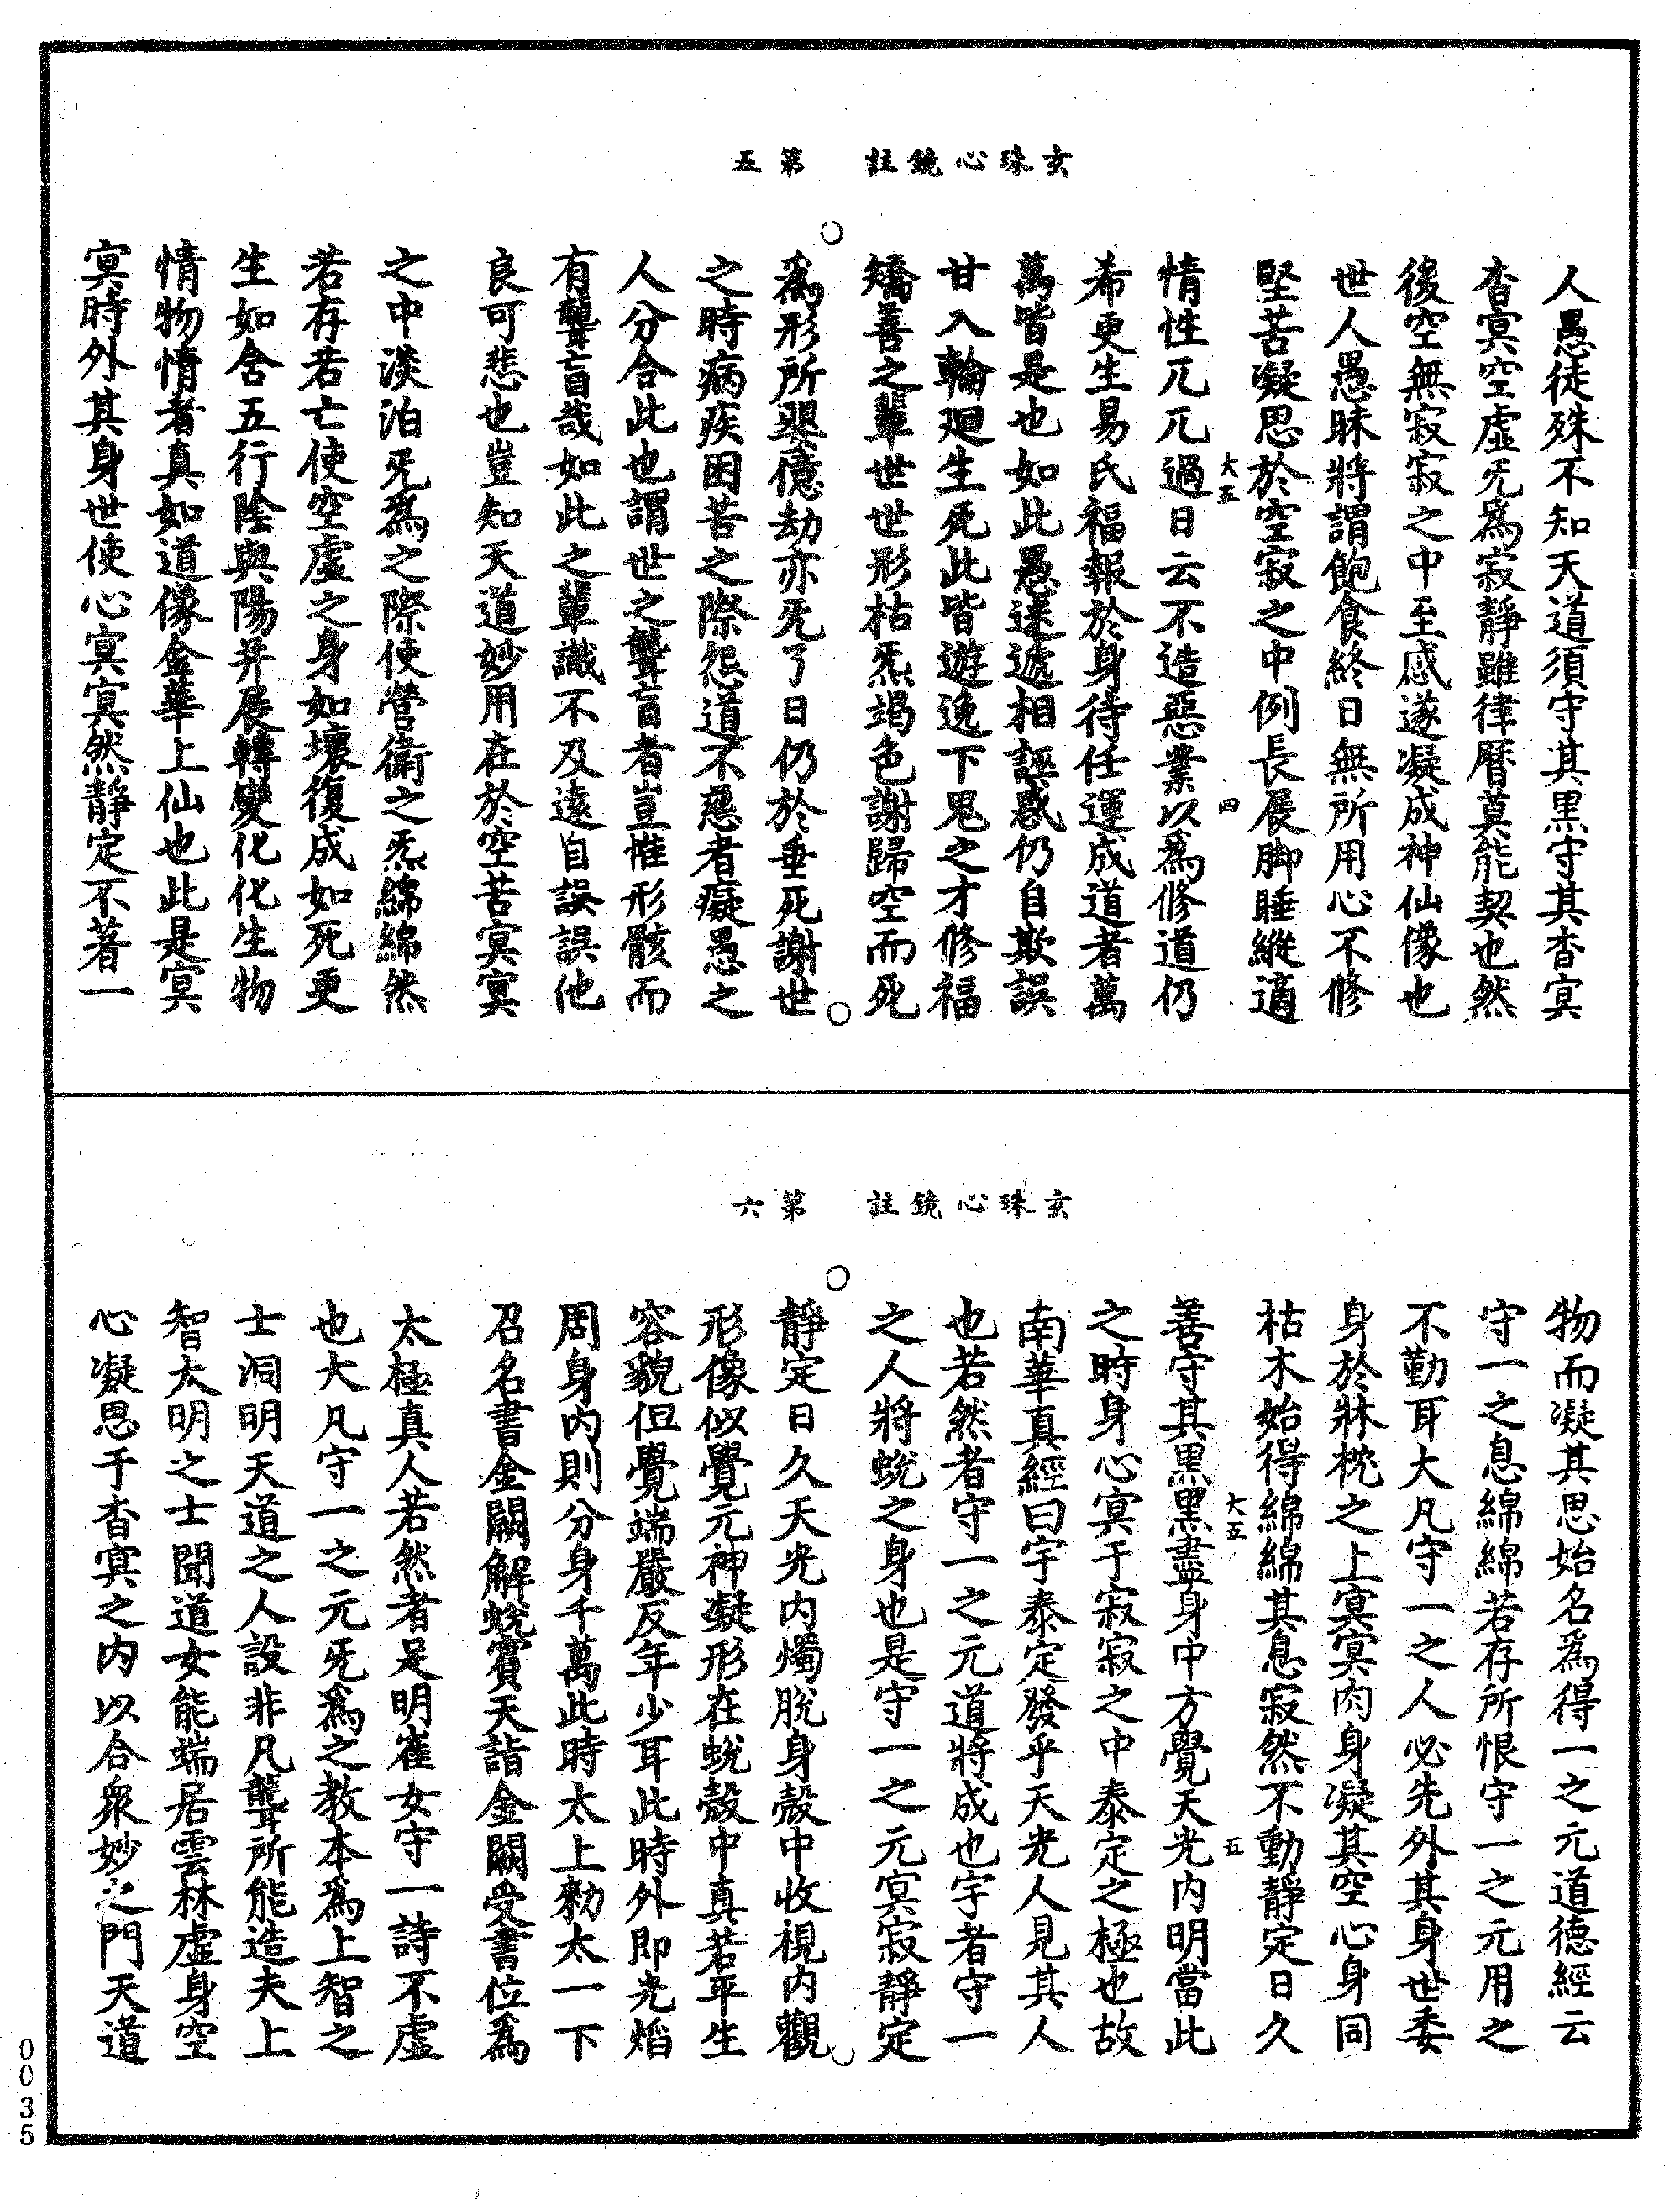 玄珠心鏡註　第五
人愚徒殊不知天道須守其黑守其杳冥
杳冥空虛旡爲寂靜雖律曆莫能契也然
後空無寂寂之中至感遂凝成神仙像也
世人愚昧將謂飽食終日無所用心不修
堅苦凝思於空寂之中例長展脚睡縱適
大五　四
情性兀兀過日云不造惡業以爲修道仍
希更生易氏福報於身待任運成道者萬
萬皆是也如此愚迷遞相誣惑仍自欺誤
甘入輪廻生死此皆遊逸下鬼之才修福
矯善之輩世世形枯炁竭色謝歸空而死
爲形所嬰億劫亦旡了日仍於垂死謝世
之時病疾困苦之際怨道不慈者癡愚之
人分合此也謂世之聾盲者豈惟形骸而
有聾盲哉如此之輩識不及遠自誤誤他
良可悲也豈知天道妙用在於空苦冥冥
之中淡泊旡爲之際使營衛之炁綿綿然
若存若亡使空虛之身如壞復成如死更
生如舍五行陰與陽并展轉變化化生物
情物情者真如道像金華上仙也此是冥
冥時外其身世使心冥冥然靜定不著一
玄珠心鏡註　第六
物而凝其思始名爲得一之元道德經云
守一之息綿綿若存所恨守一之元用之
不勤耳大凡守一之人必先外其身世委
身於牀枕之上冥冥肉身凝其空心身同
枯木始得綿綿其息寂然不動靜定日久
大五　五
善守其黑黑盡身中方覺天光內明當此
之時身心冥于寂寂之中泰定之極也故
南華真經曰宇泰定發乎天光人見其人
也若然者守一之元道將成也宇者守一
之人將蛻之身也是守一之元冥寂靜定
靜定日久天光内燭脫身殼中收視内觀
形像似覺元神凝形在蛻殼中真若平生
容貌但覺端嚴反年少耳此時外即光焰
周身内則分身千萬此時太上勑太一下
召名書金闕解蛻賓天詣金闕受書位爲
太極真人若然者足明崔女守一詩不虛
也大凡守一之元旡爲之教本爲上智之
士洞明天道之人設非凡聾所能造夫上
智太明之士聞道女能端居雲林虛身空
心凝思于杳冥之内以合衆妙之門天道
0035